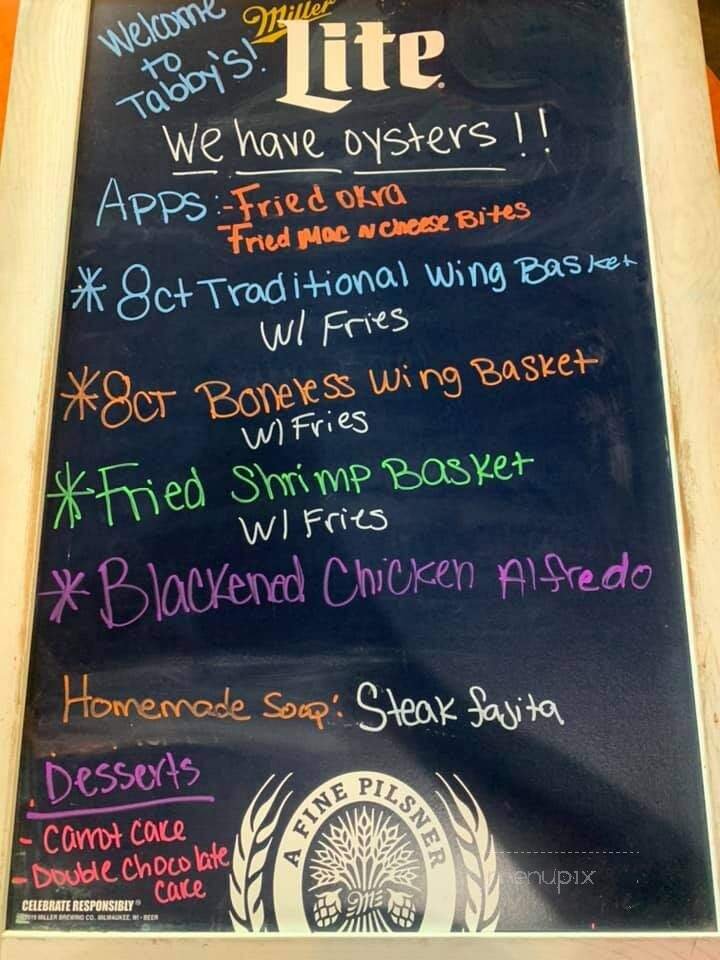 Welcome
to
Tabby's!
Miller
Lite
We have oysters !!
Apps:-Fried okra
Fried Mac N cheese Bites
* 8ct Traditional Wing Basket
W/ Fries
* 8ct Boneless Wing Basket
W/ Fries
* Fried Shrimp Basket
W/ Fries
* Blackened Chicken Alfredo
Homemade Soup: Steak fajita
Desserts
- Carrot Cake
- Double Chocolate
Cake
A FINE PILSNER
M
CELEBRATE RESPONSIBLY®
©2019 MILLER BREWING CO., MILWAUKEE, WI • BEER
menupix